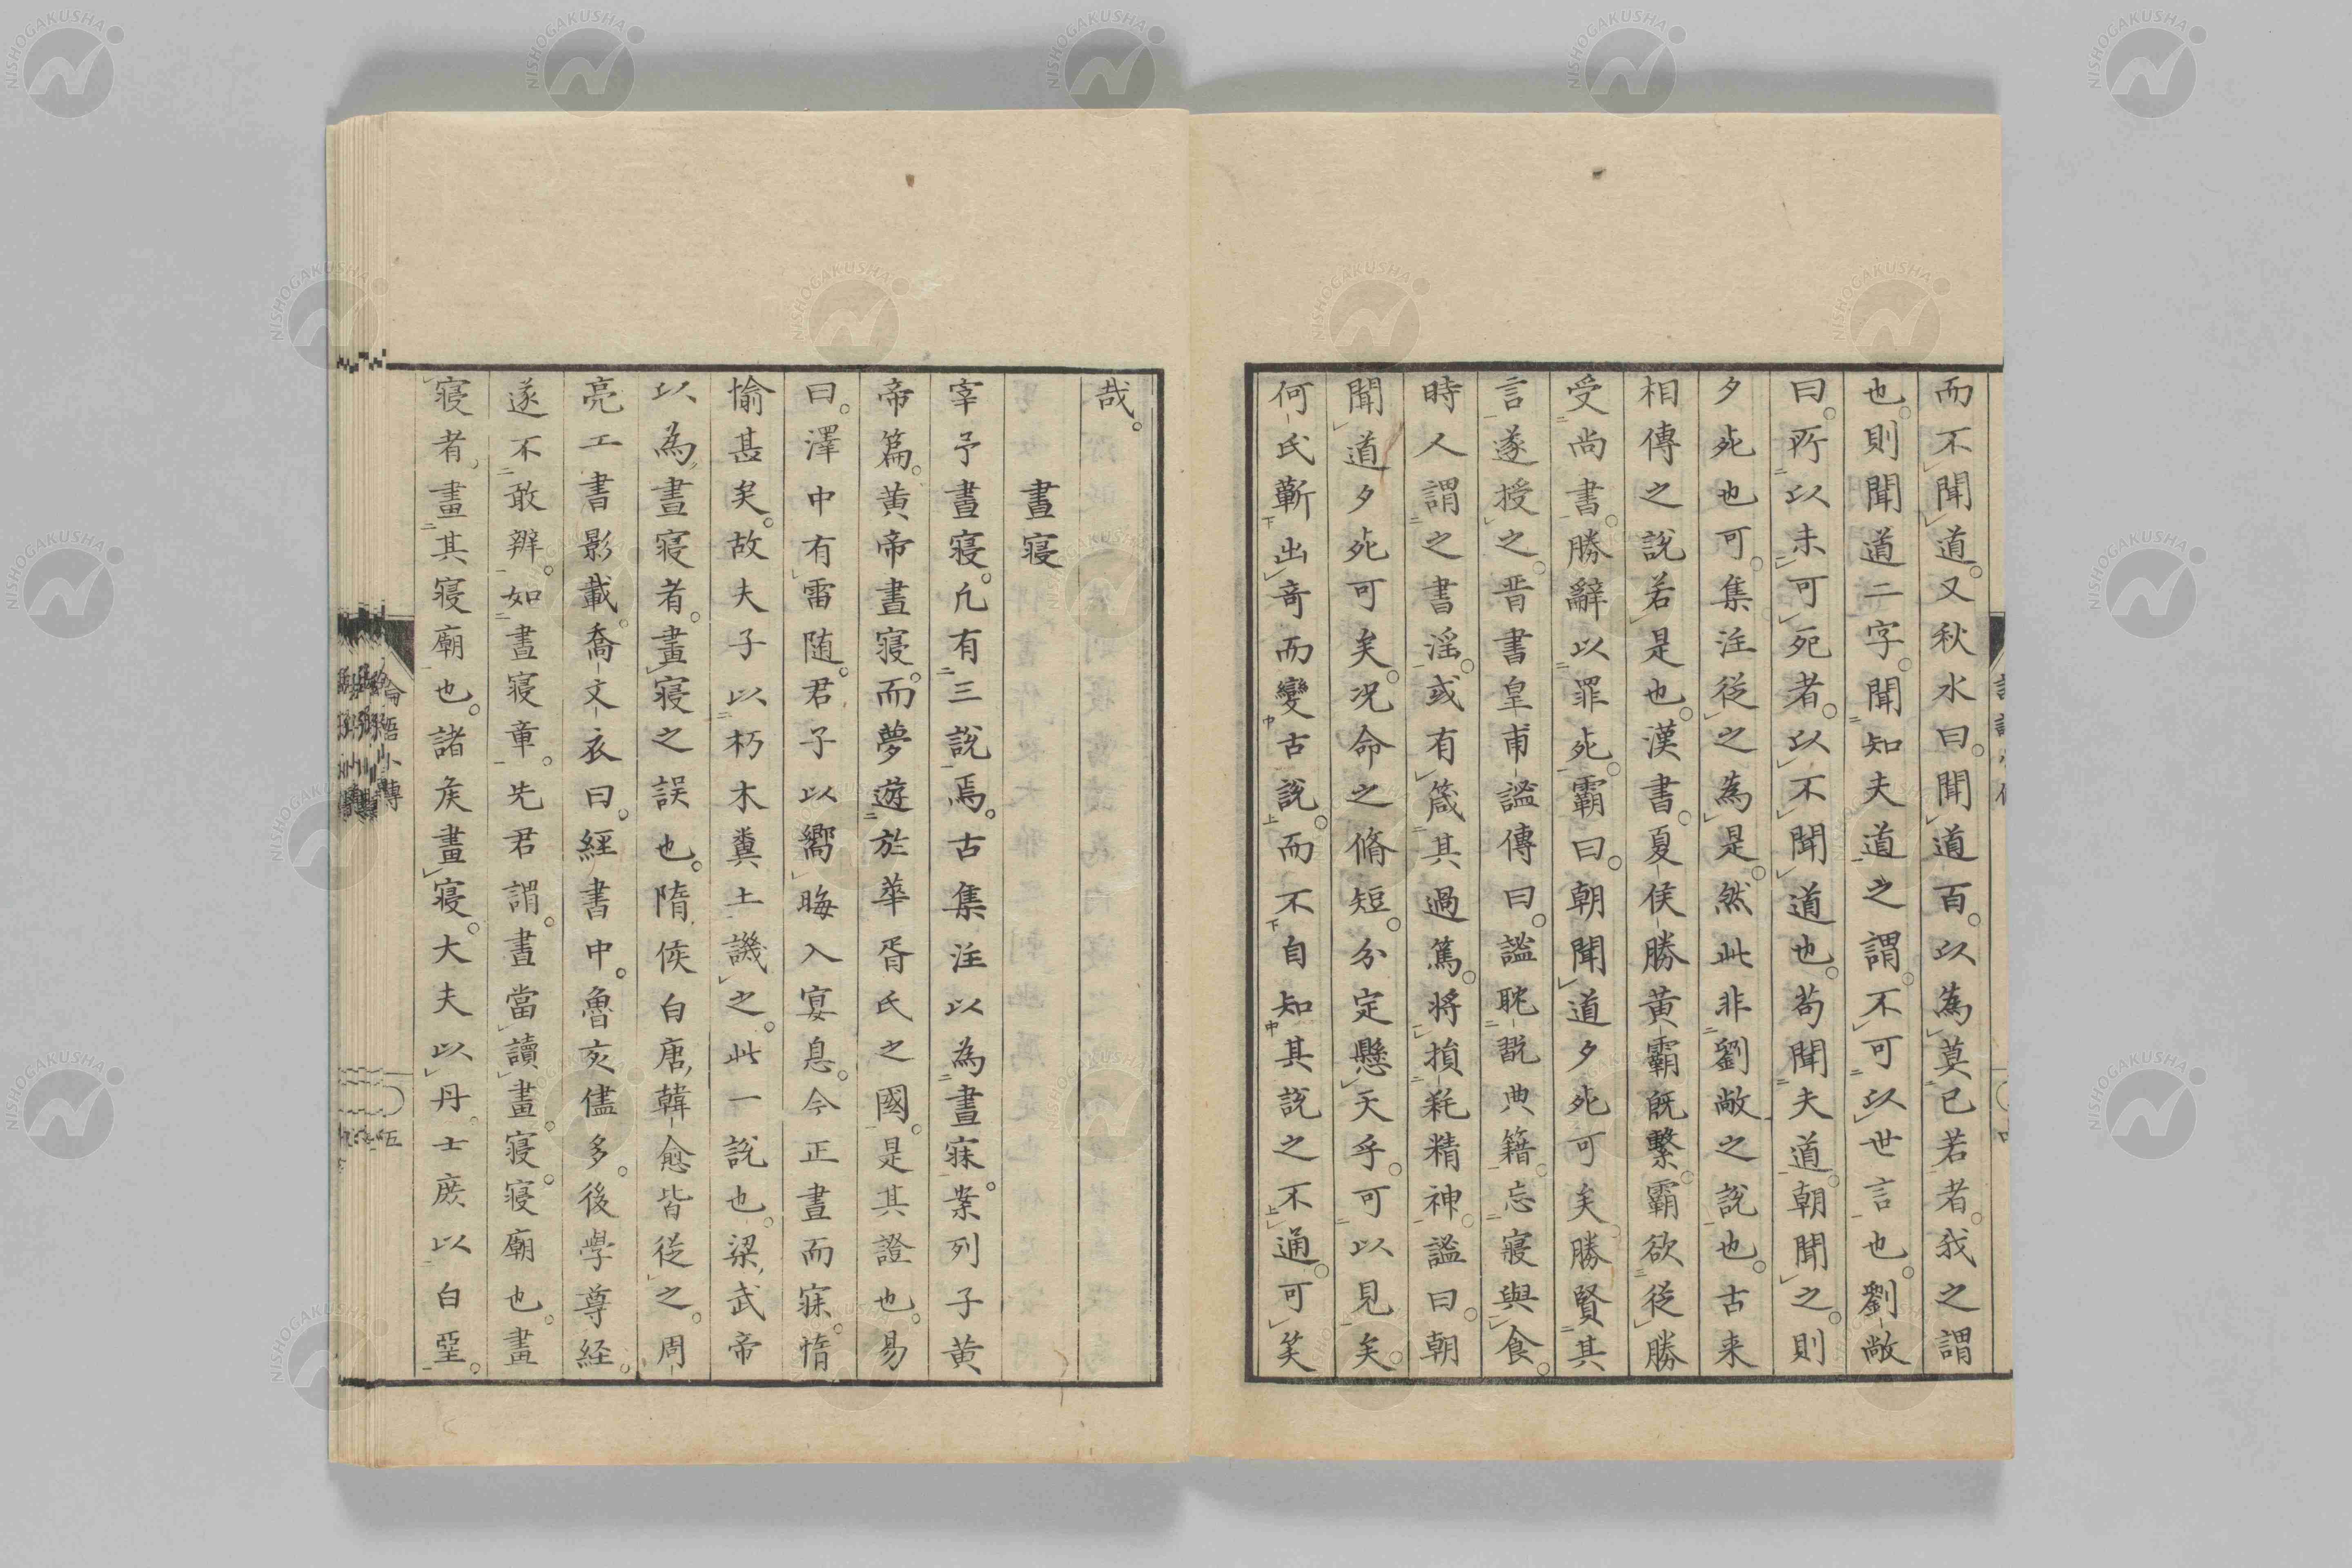 而不聞道。又秋水曰。聞道百。以為莫已若者。我之謂
也。則聞道二字。聞知夫道之謂。不可以世言也。劉敞
曰。所以未可死者。以不聞道也。苟聞夫道。朝聞之。則
夕死也可。集注從之為是。然此非劉敞之說也。古来
相傳之說若是也。漢書。夏侯勝黃霸既繫。霸欲從勝
受尚書。勝辭以罪死。霸曰。朝聞道夕死可矣。勝賢其
言遂授之。晋書皇甫謐傳曰。謐耽翫典籍。忘寢與食。
時人謂之書淫。或有箴其過篤。將損耗精神。謐曰。朝
聞道夕死可矣。况命之脩短。分定懸天乎。可以見矣。
何氏蘄出奇而變古說。而不自知其說之不通。可笑
哉。
晝寢
宰予晝寢。凢有三說焉。古集注以為晝寐。案列子黃
帝篇。黄帝晝寢。而夢遊於華胥氏之國。是其證也。易
曰。澤中有雷随。君子以嚮晦入宴息。今正晝而寐。惰
愉甚矣。故夫子以朽木糞土譏之。此一說也。梁武帝
以為晝寢者。畫寢之誤也。隋侯白唐韓愈皆從之。周
亮工書影載。喬文衣曰。經書中。魯亥儘多。後學尊經。
遂不敢辨。如晝寢章。先君謂。晝當讀畫。寢。寢廟也。畫
寢者畫其寢廟也。諸矦畫寢。大夫以丹。士庶以白堊。
論語小傳
五
NISHOGAKUSHA